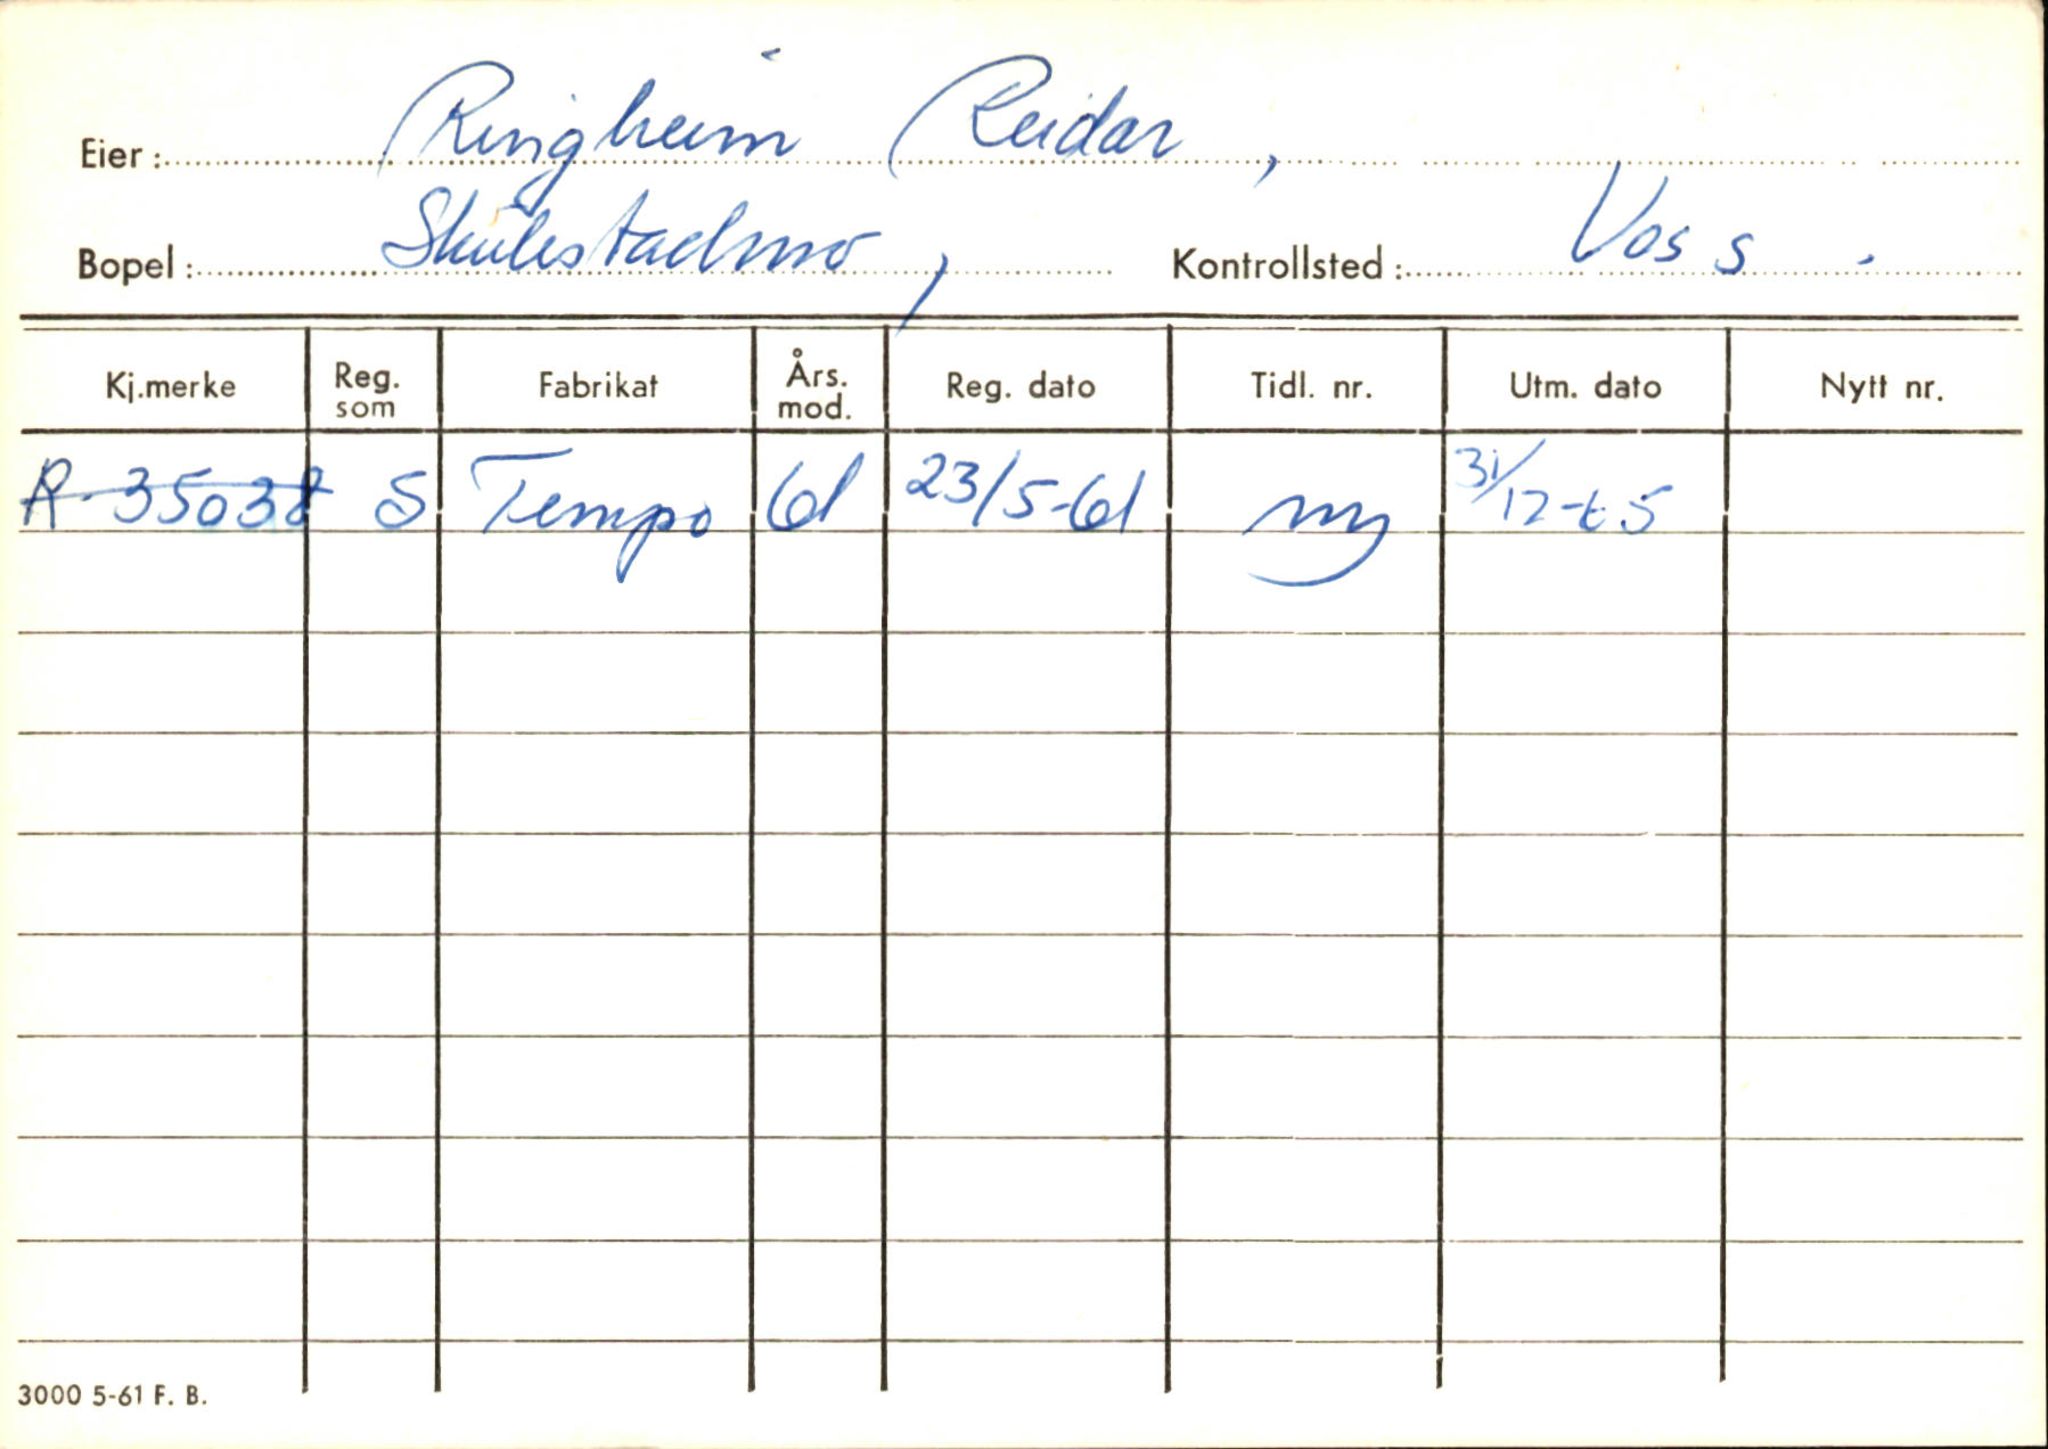 Eier: Ringheim Reidar,
Bopel: Skulestadmo, Kontrollsted: Voss.
Kj.merke Reg. som Fabrikat Års. mod. Reg. dato Tidl. nr. Utm. dato Nytt nr.
R-35038 S Tempo 61 23/5-61 ny 31/12-65
3000 5-61 F. B.